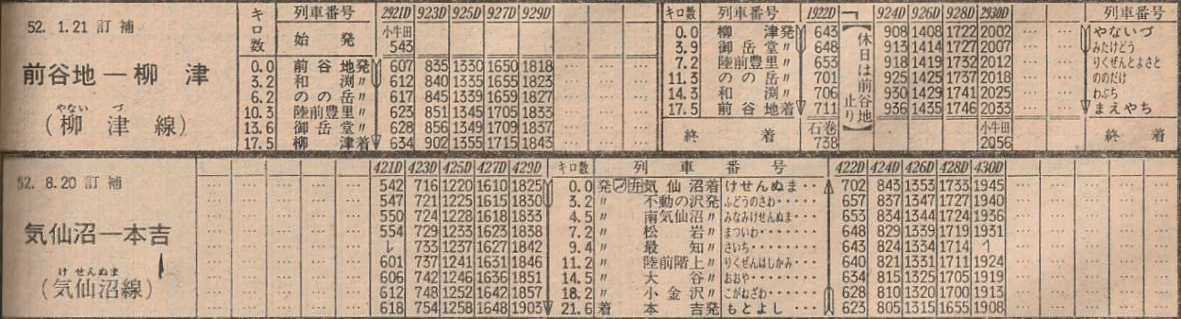 52. 1.21 訂補
前谷地―柳津
やない づ
(柳津線)
キロ数 列車番号 2921D 923D 925D 927D 929D
始発 小牛田 543
0.0 前谷地発 607 835 1330 1650 1818
3.2 和渕〃 612 840 1335 1655 1823
6.2 のの岳〃 617 845 1339 1659 1827
10.3 陸前豊里〃 623 851 1345 1705 1833
13.6 御岳堂〃 628 856 1349 1709 1837
17.5 柳津着 634 902 1355 1715 1843
キロ数 列車番号 1922D 924D 926D 928D 2930D 列車番号
0.0 柳津発 643 908 1408 1722 2002 やないづ
3.9 御岳堂〃 648 913 1414 1727 2007 みたけどう
7.2 陸前豊里〃 653 918 1419 1732 2012 りくぜんとよさと
11.3 のの岳〃 701 925 1425 1737 2018 ののだけ
14.3 和渕〃 706 930 1429 1741 2025 わぶち
17.5 前谷地着 711 936 1435 1746 2033 まえやち
【休日は前谷地止り】
終着 石巻 738 小牛田 2056 終着
52. 8.20 訂補
気仙沼―本吉
け せんぬま
(気仙沼線)
421D 423D 425D 427D 429D キロ数 列車番号 422D 424D 426D 428D 430D
542 716 1220 1610 1825 0.0 発 気仙沼着 けせんぬま‥ 702 843 1353 1733 1945
547 721 1225 1615 1830 3.2 〃 不動の沢発 ふどうのさわ‥‥‥ 657 837 1347 1727 1940
550 724 1228 1618 1833 4.5 〃 南気仙沼〃 みなみけせんぬま‥ 653 834 1344 1724 1936
554 729 1233 1623 1838 7.2 〃 松岩〃 まついわ‥‥‥‥ 648 829 1339 1719 1931
レ 733 1237 1627 1842 9.4 〃 最知〃 さいち‥‥‥‥‥ 643 824 1334 1714 ↿
601 737 1241 1631 1846 11.2 〃 陸前階上〃 りくぜんはしかみ‥ 640 821 1331 1711 1924
606 742 1246 1636 1851 14.5 〃 大谷〃 おおや‥‥‥‥‥ 634 815 1325 1705 1919
612 748 1252 1642 1857 18.2 〃 小金沢〃 こがねざわ‥‥‥ 628 810 1320 1700 1913
618 754 1258 1648 1903 21.6 着 本吉発 もとよし‥‥ 623 805 1315 1655 1908